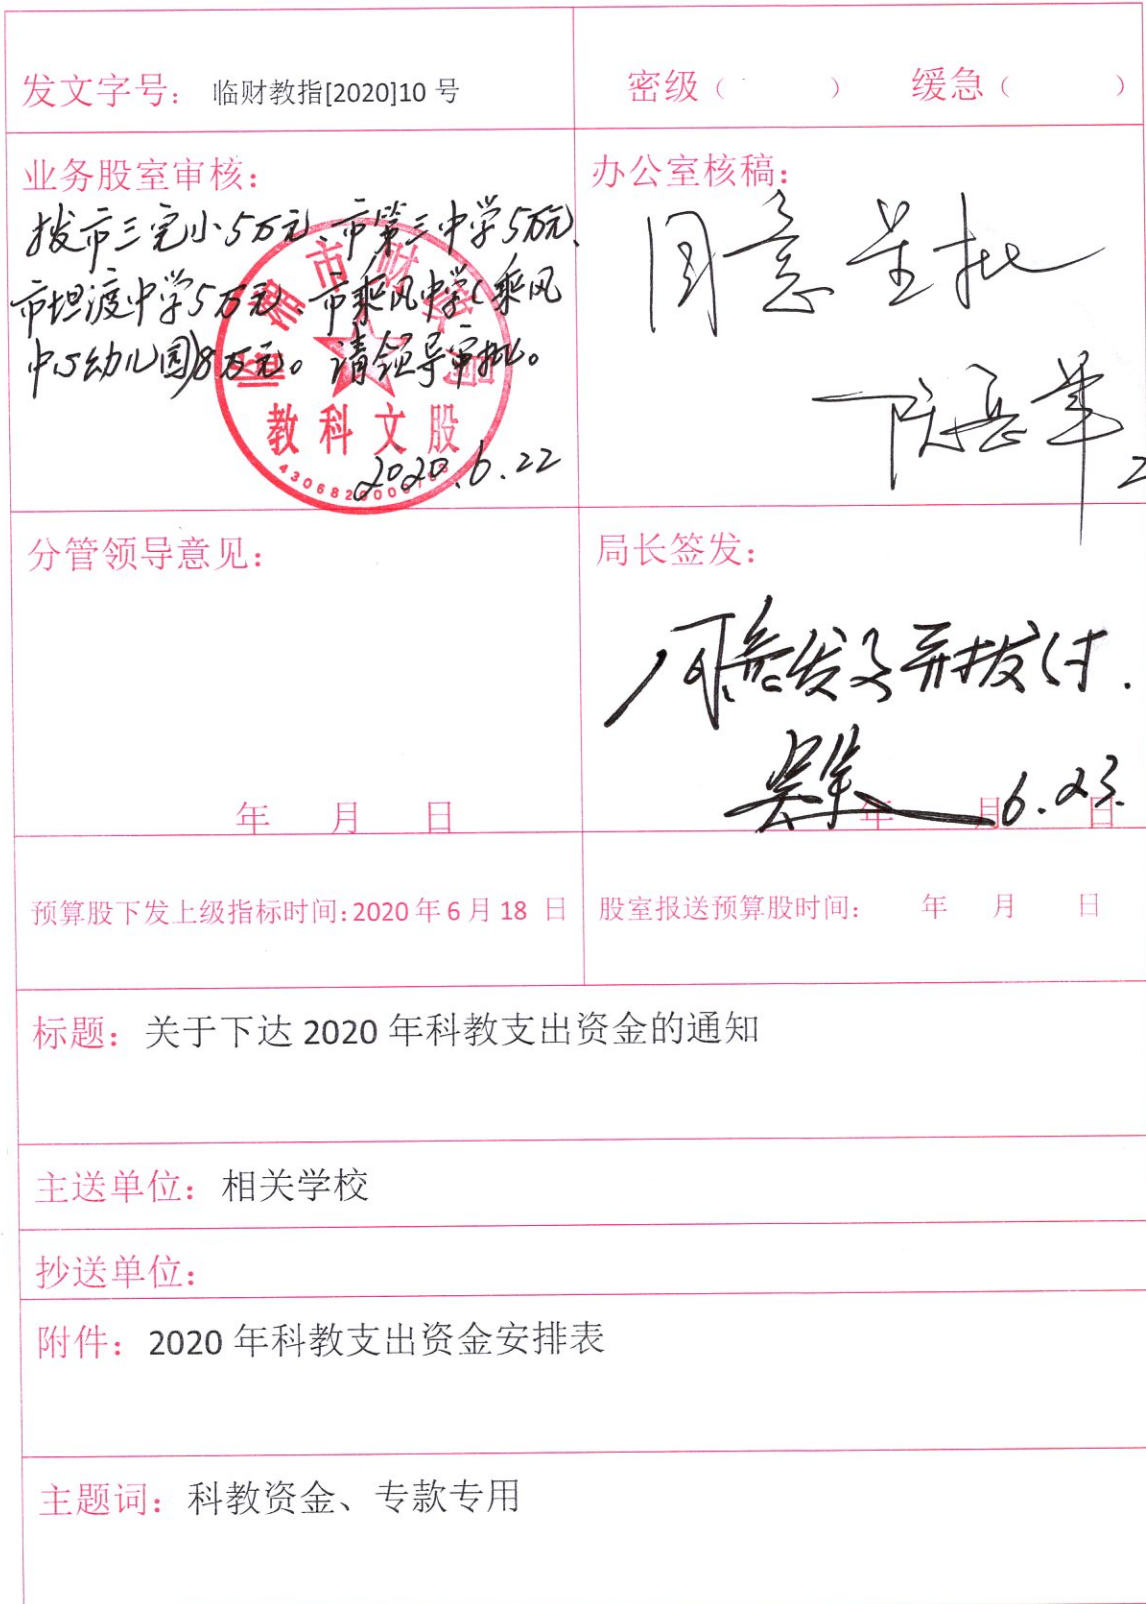 发文字号： 临财教指[2020]10 号
密级（　　） 缓急（　　）
业务股室审核：
拨市三完小5万元、市第三中学5万元、
市坦渡中学5万元、市乘风中学(乘风
中心幼儿园)8万元。请领导审批。
临湘市财政局
教科文股
2020.6.22
办公室核稿：
同意呈批
分管领导意见：
年 月 日
局长签发：
同意发文并拨付.
6.23.
年 月 日
预算股下发上级指标时间:2020 年 6 月 18 日
股室报送预算股时间： 年 月 日
标题：关于下达 2020 年科教支出资金的通知
主送单位：相关学校
抄送单位：
附件：2020 年科教支出资金安排表
主题词：科教资金、专款专用